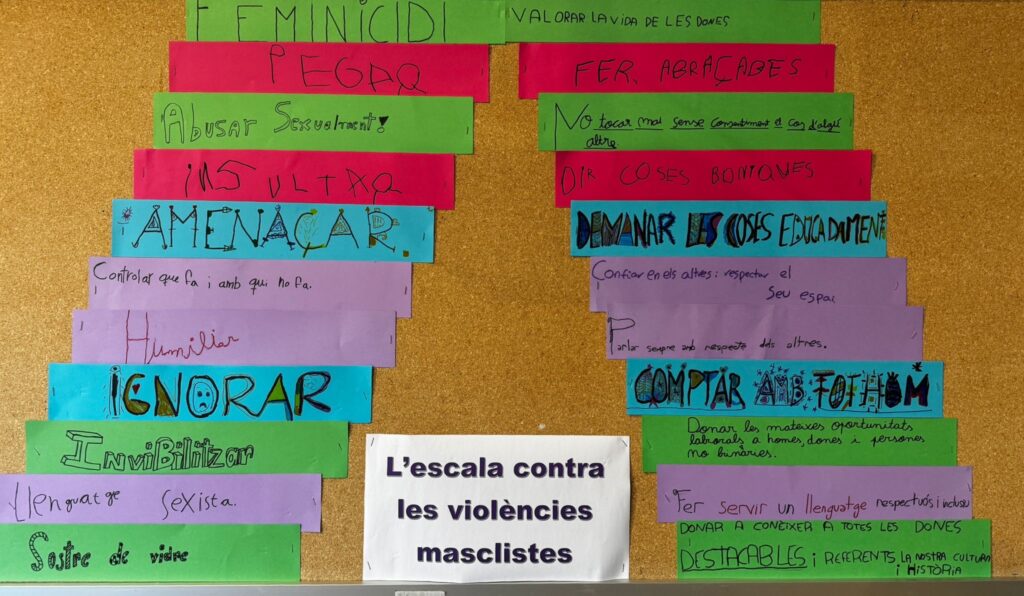 FEMINICIDI
PEGAR
Abusar Sexualment!
INSULTAR
AMENAÇAR.
Controlar que fa i amb qui ho fa.
Humiliar
IGNORAR
InviBilitzar
Llenguatge sexista.
Sostre de vidre
VALORAR LA VIDA DE LES DONES
FER ABRAÇADES
No tocar mai sense consentiment el cos d'algú
altre
DIR COSES BONIQUES
DEMANAR LES COSES EDUCADAMENT
Confiar en els altres i respectar el
seu espai
Parlar sempre amb respecte dels altres.
COMPTAR AMB TOTHOM
Donar les mateixes oportunitats
laborals a homes, dones i persones
no binàries.
Fer servir un llenguatge respectuós i inclusiu
DONAR A CONEIXER A TOTES LES DONES
DESTACABLES i REFERENTS LA NOSTRA CULTURA
i HISTÒRIA
L'escala contra
les violències
masclistes